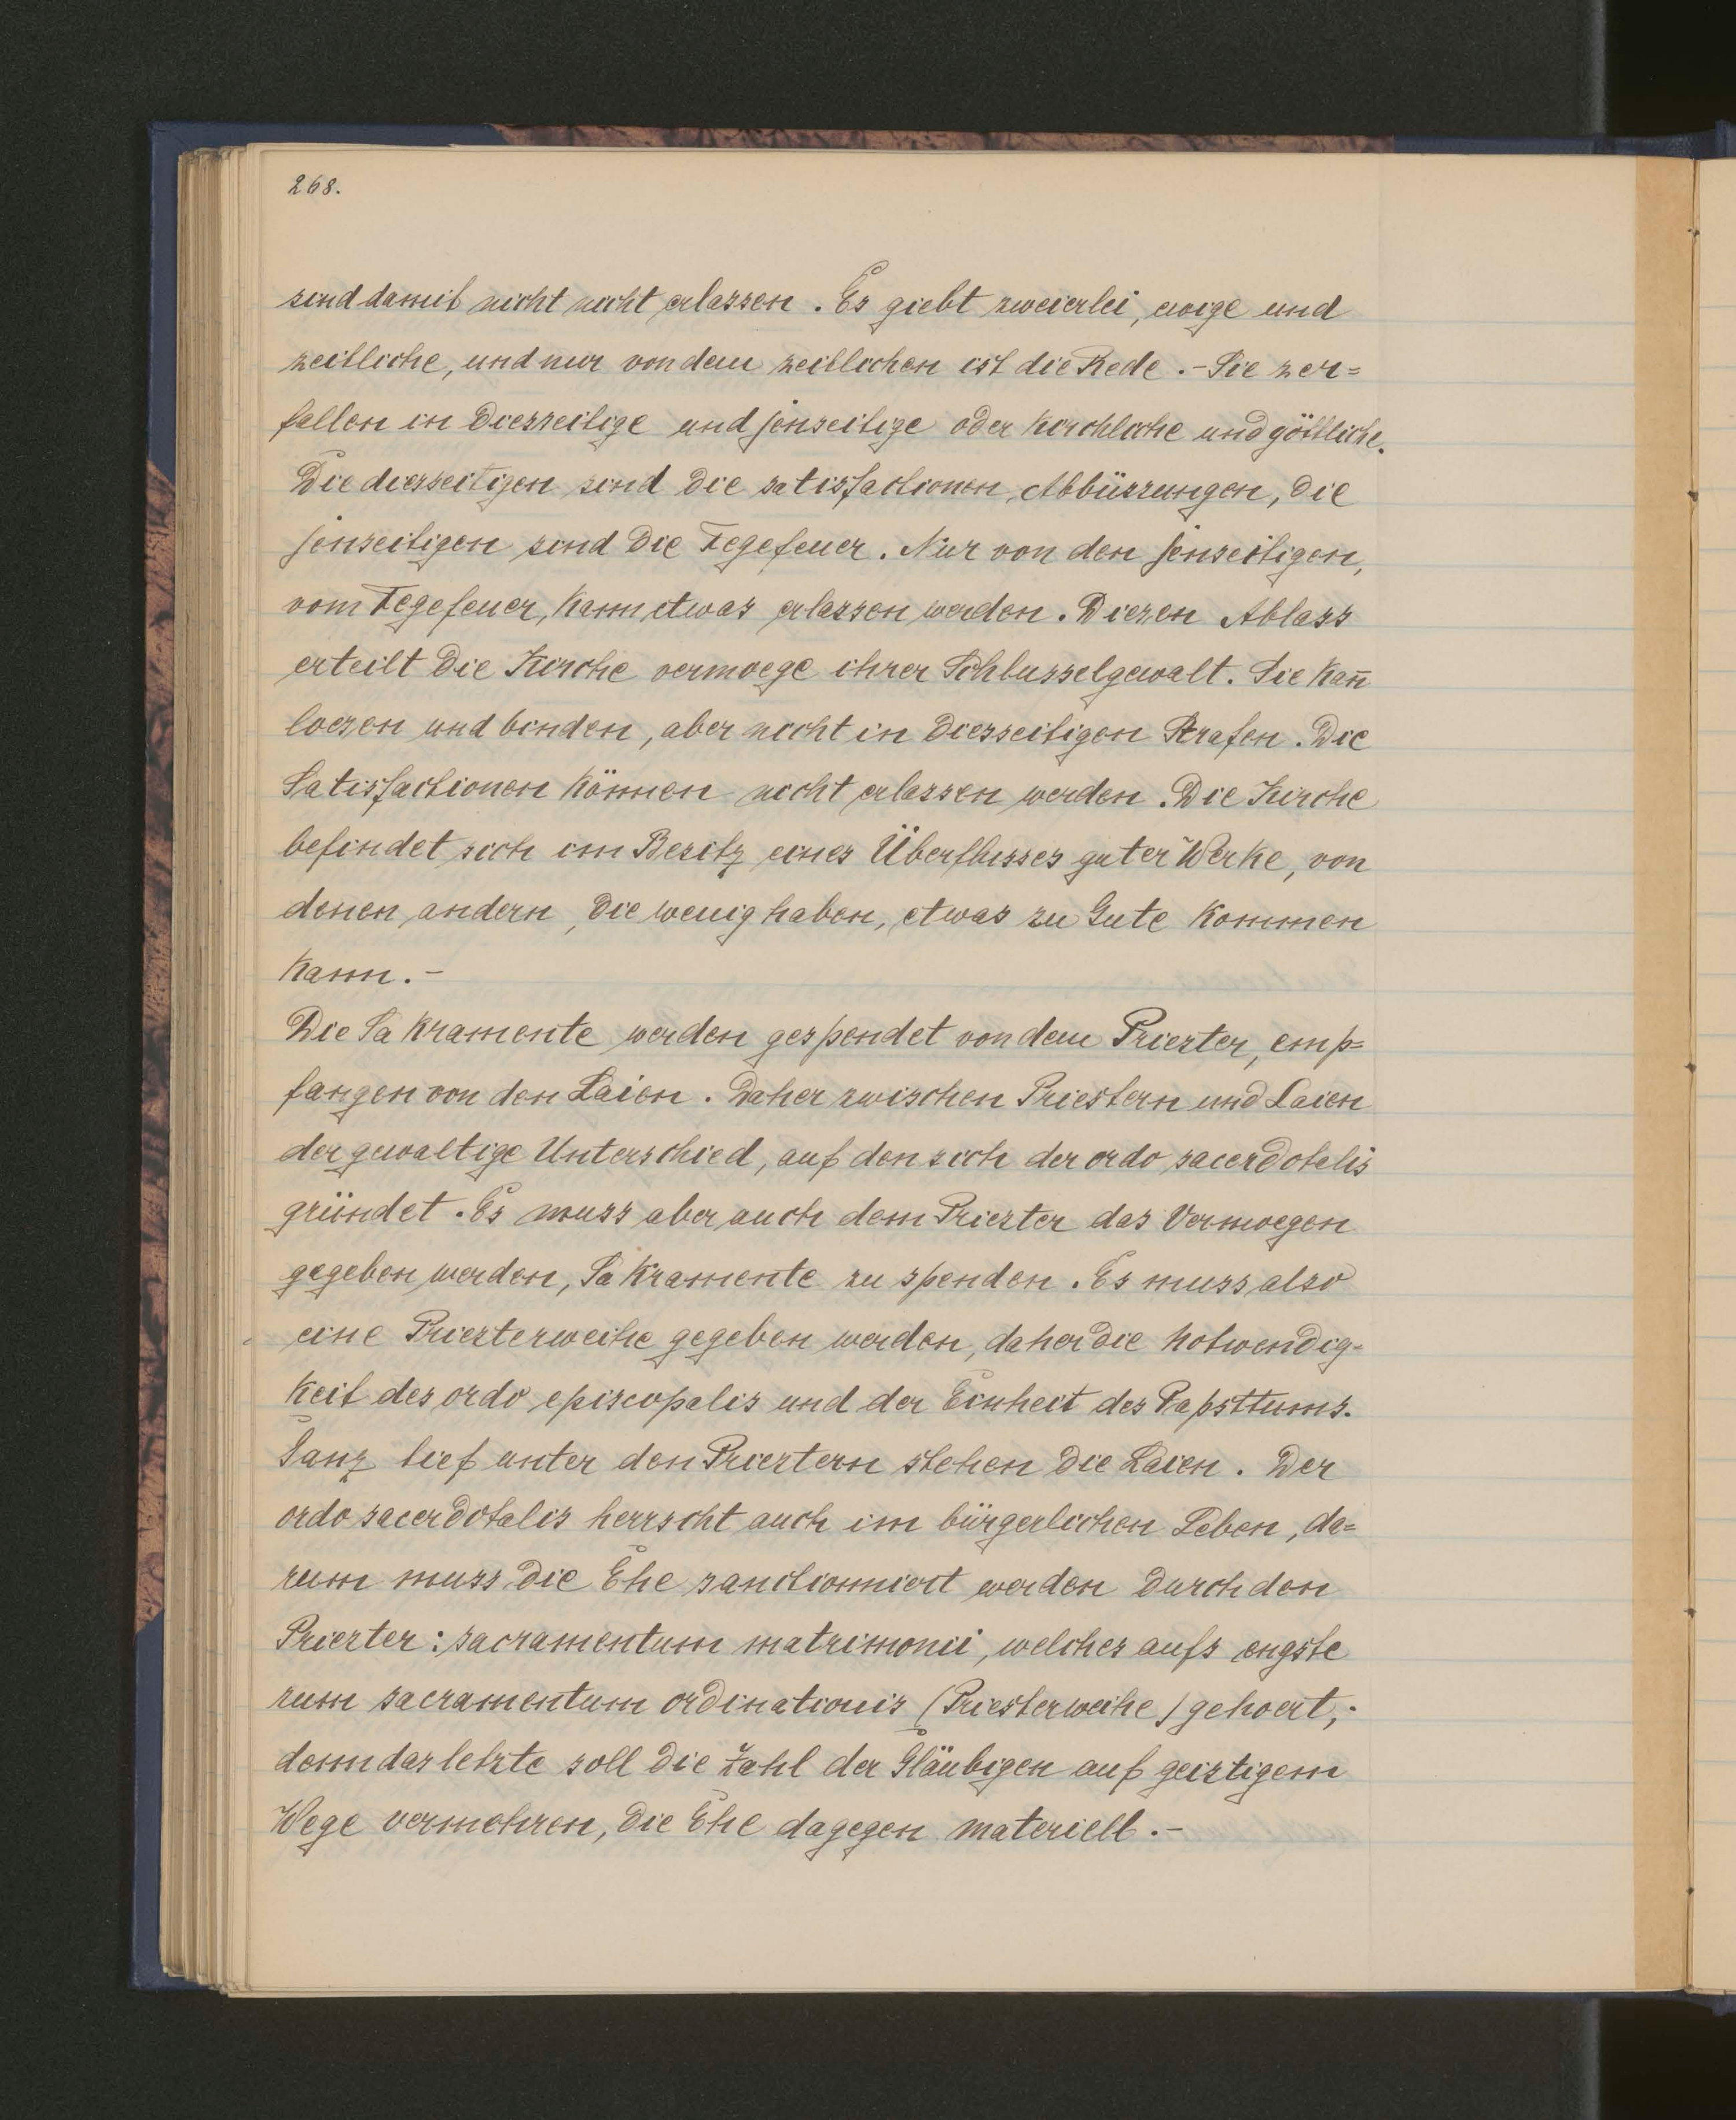 268.
sind damit nicht nicht erlassen. Es giebt zweierlei, ewige und
zeitliche, und nur von dem zeitlichen ist die Rede. - Sie zer=
fallen in diesseitige und jenseitige oder kirchliche und göttliche.
Die diesseitigen sind die satisfactionen, Abbüssungen, die
jenseitigen sind die Fegefeuer. Nur von den jenseitigen,
vom Fegefeuer, kann etwas erlassen werden. Diesen Ablass
erteilt die Kirche vermoege ihrer Schlusselgewalt. Sie kañ
loesen und binden, aber nicht in diesseitigen Strafen. Die
Satisfactionen können nicht erlassen werden. Die Kirche
befindet sich im Besitz eines Überflusses guter Werke, von
denen andern, die wenig haben, etwas zu Gute kommen
kann. -
Die Sakramente werden gespendet von dem Priester, emp=
fangen von den Laien. Daher zwischen Priestern und Laien
der gewaltige Unterschied, auf den sich der ordo sacerdotalis
gründet. Es muss aber auch dem Priester das Vermoegen
gegeben werden, Sakramente zu spenden. Es muss also
eine Priesterweihe gegeben werden, daher die Notwendig-
keit des ordo episcopalis und der Einheit des Papsttums.
Ganz tief unter den Priestern stehen die Laien. Der
ordo sacerdotalis herrscht auch im bürgerlichen Leben, da=
rum muss die Ehe sanctionniert werden durch den
Priester: sacramentum matrimonii, welches aufs engste
zum sacramentum ordinationis (Priesterweihe) gehoert;
denn das letzte soll die Zahl der Gläubigen auf geistigem
Wege vermehren, die Ehe dagegen materiell. -